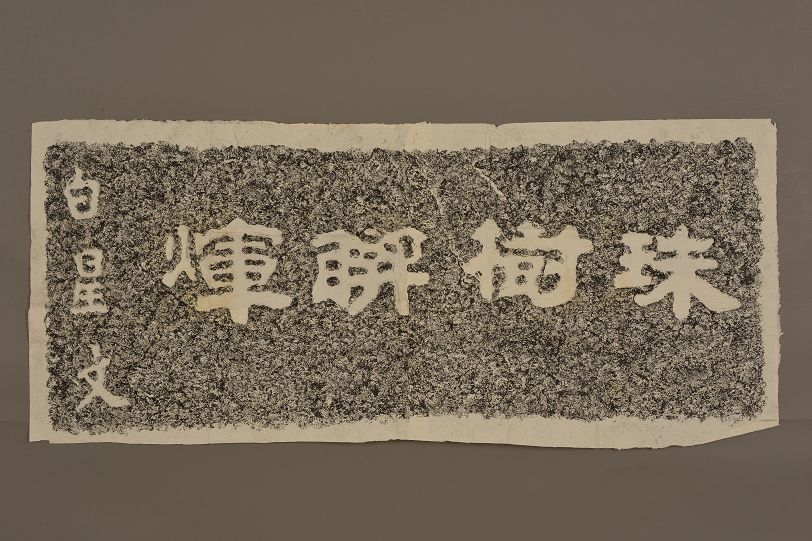 珠樹聯煇
白星文